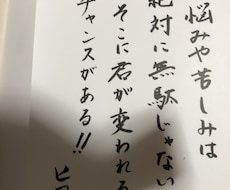 悩みや苦しみは
絶対に無駄じゃない
そこに君が変われる
チャンスがある!!